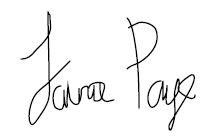 Laurae Page